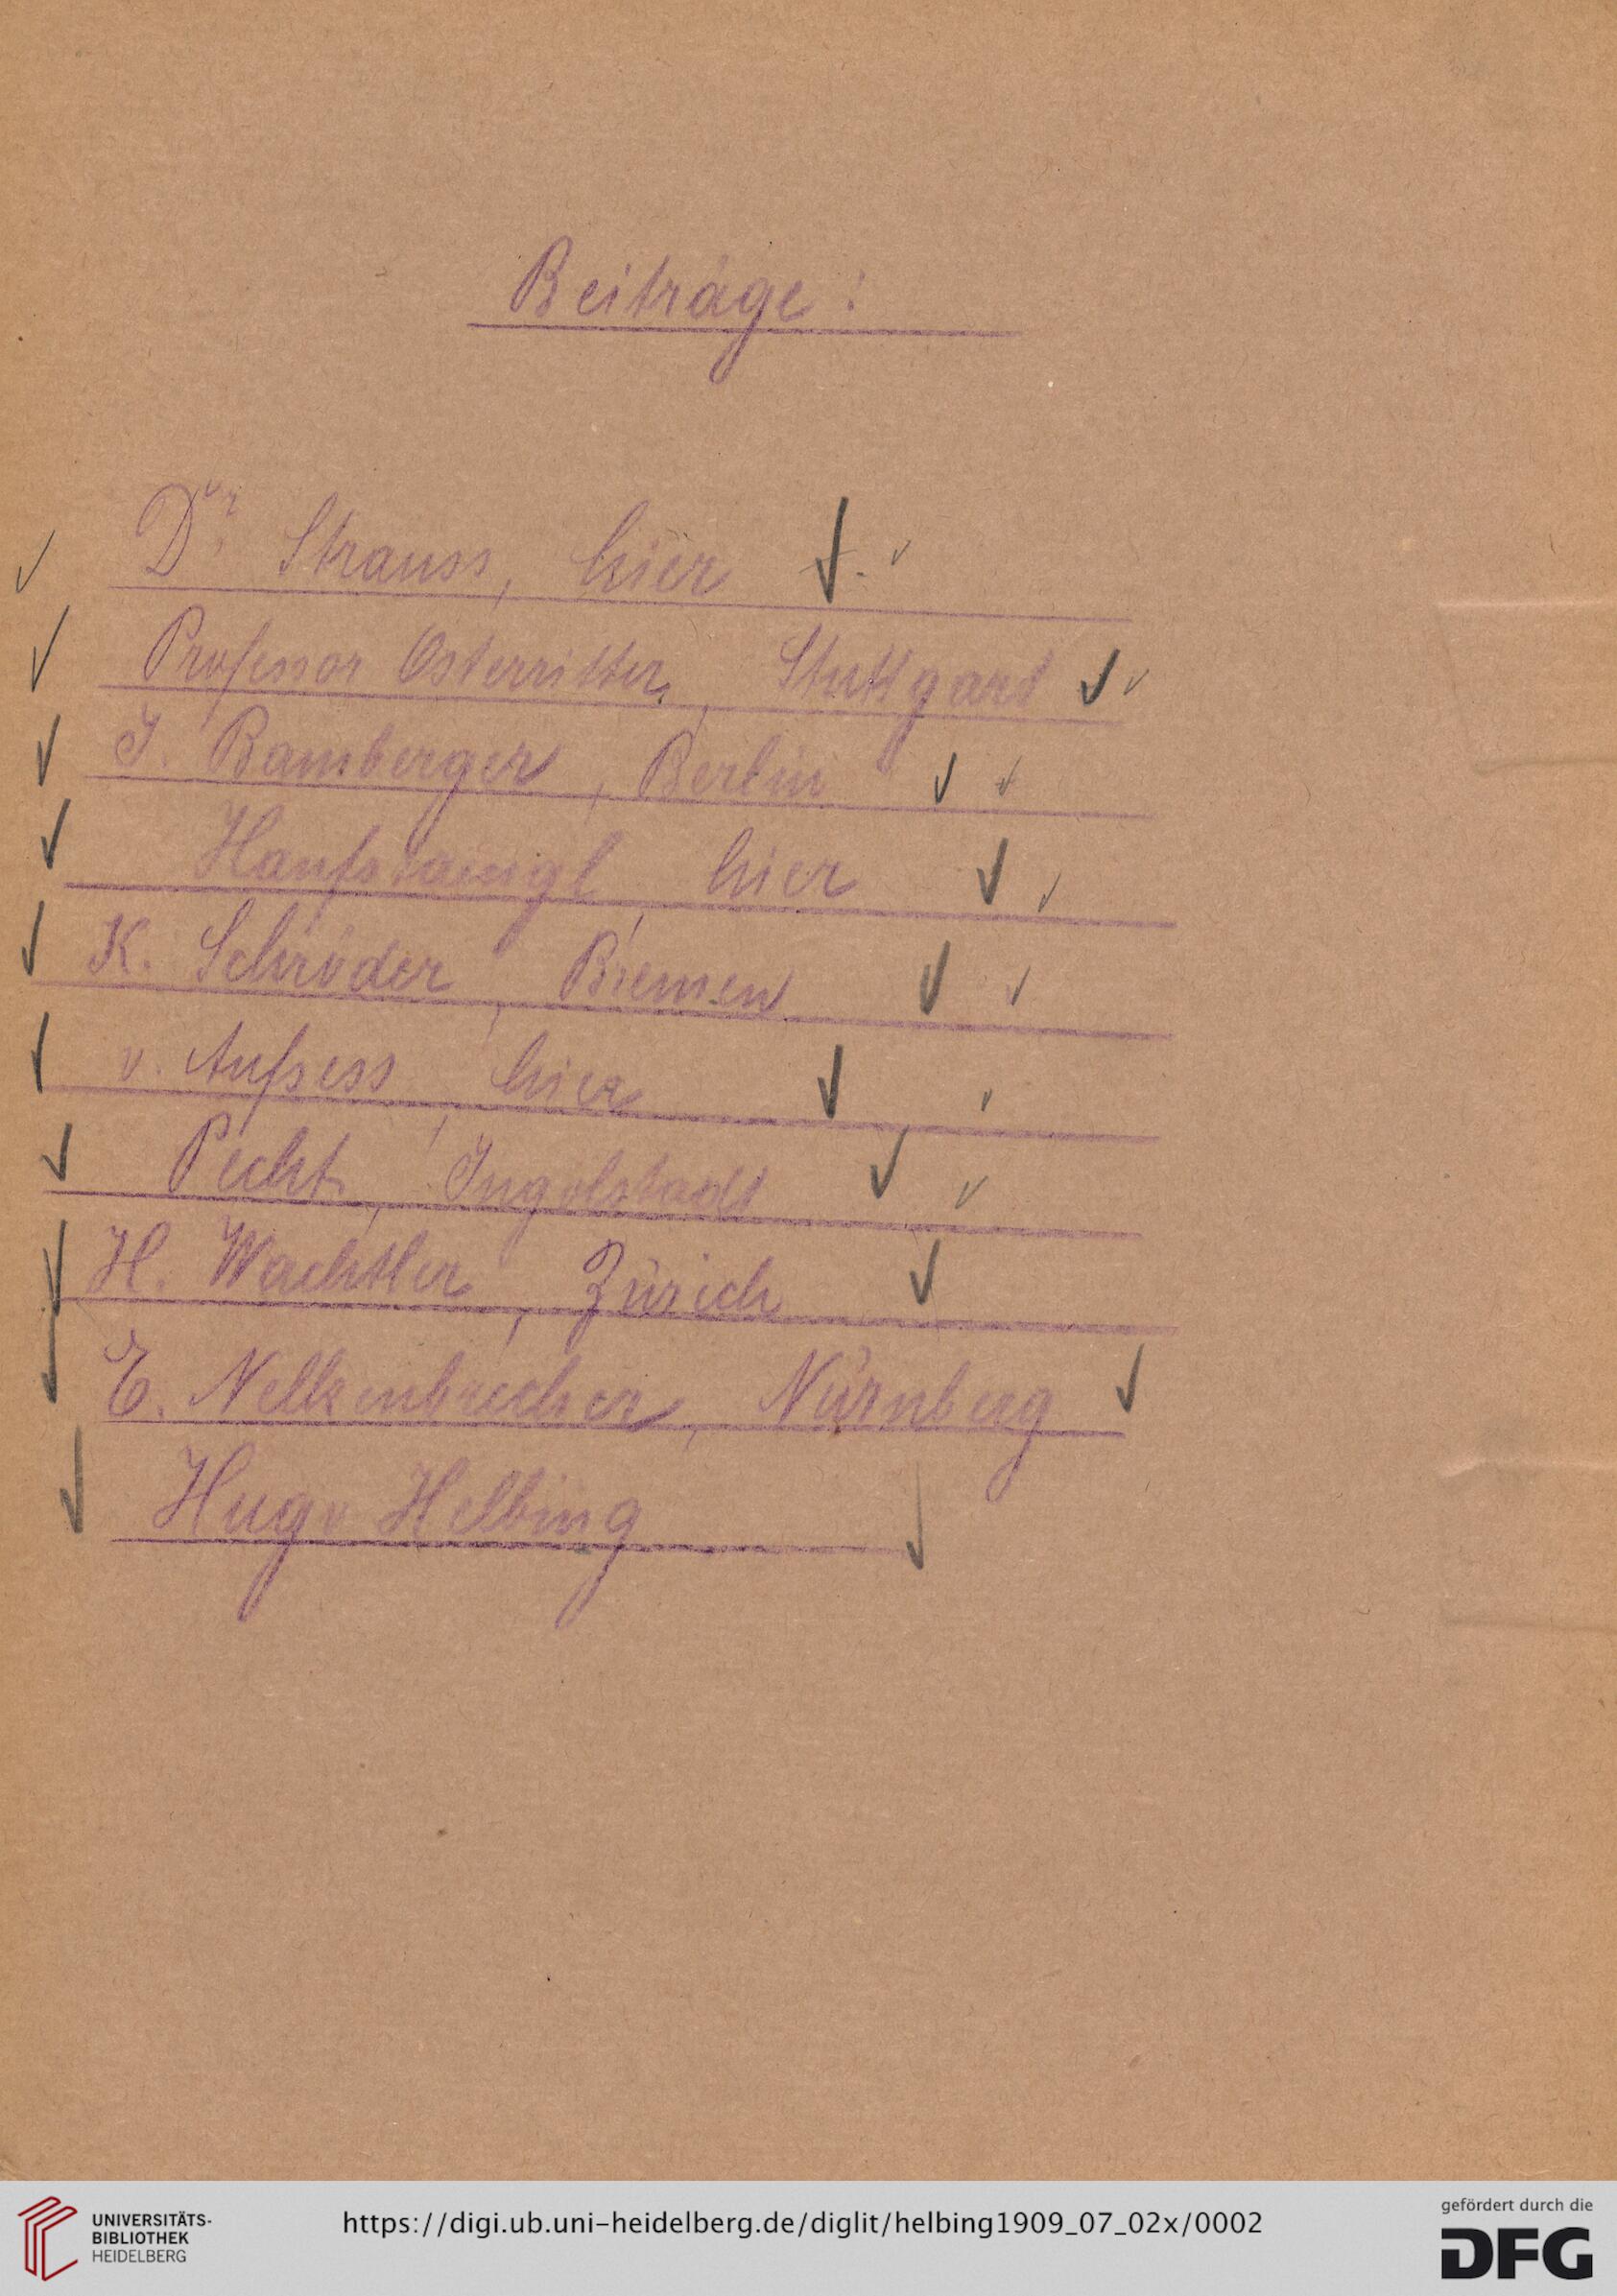 Beiträge:
Dr. Strauss, hier
Professor Osterritter, Stuttgard
J. Bamberger, Berlin
Hanfstaengl, hier
K. Schröder, Bremen
v. Aufsess, hier
Pecht, Ingolstadt
H. Wachtler, Zürich
E. Nelkenbrecher, Nürnberg
Hugo Helbing
UNIVERSITÄTS-
BIBLIOTHEK
HEIDELBERG
https://digi.ub.uni-heidelberg.de/diglit/helbing1909_07_02x/0002
gefördert durch die
DFG